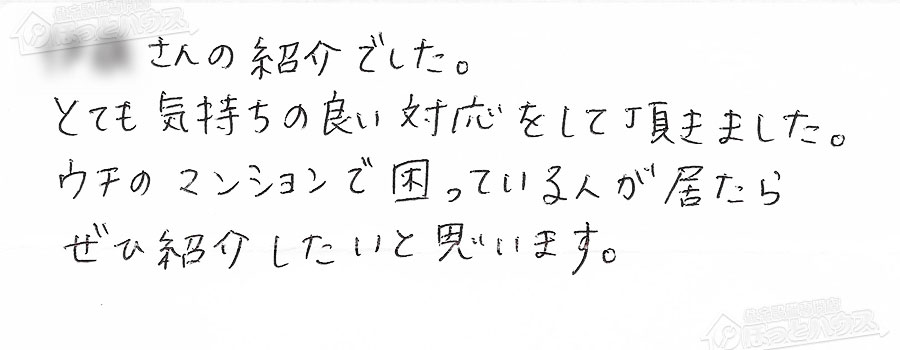 さんの紹介でした。
とても気持ちの良い対応をして頂きました。
ウチのマンションで困っている人が居たら
ぜひ紹介したいと思います。
ほっとハウス
ほっとハウス